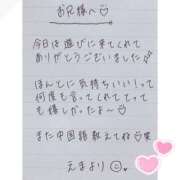 お兄様へ♡
今日は遊びに来てくれて
ありがとうございました
ほんとに気持ちいい!って
何度も言ってくれてとって
も嬉しかったな♡
また中国語教えてね♡笑
えまより☺